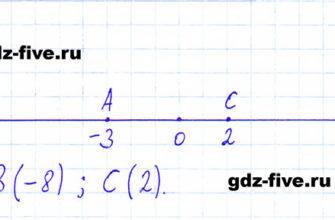 dz-five.ru
A C
-3 0 2
B(-8) ; C(2).
gdz-five.ru